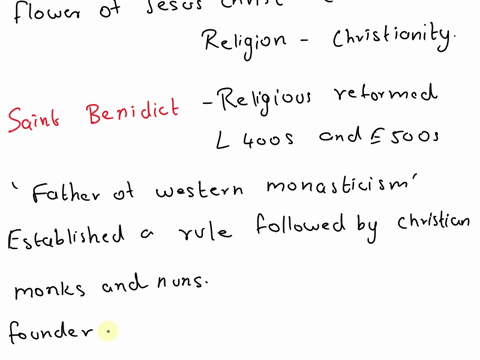 flower of Jesus Christ
Religion - Christionity.
Saint Benidict - Religious reformed
L 400s and E 500s
'Father of western monasticism'
Established a rule followed by christian
monks and nuns.
founder